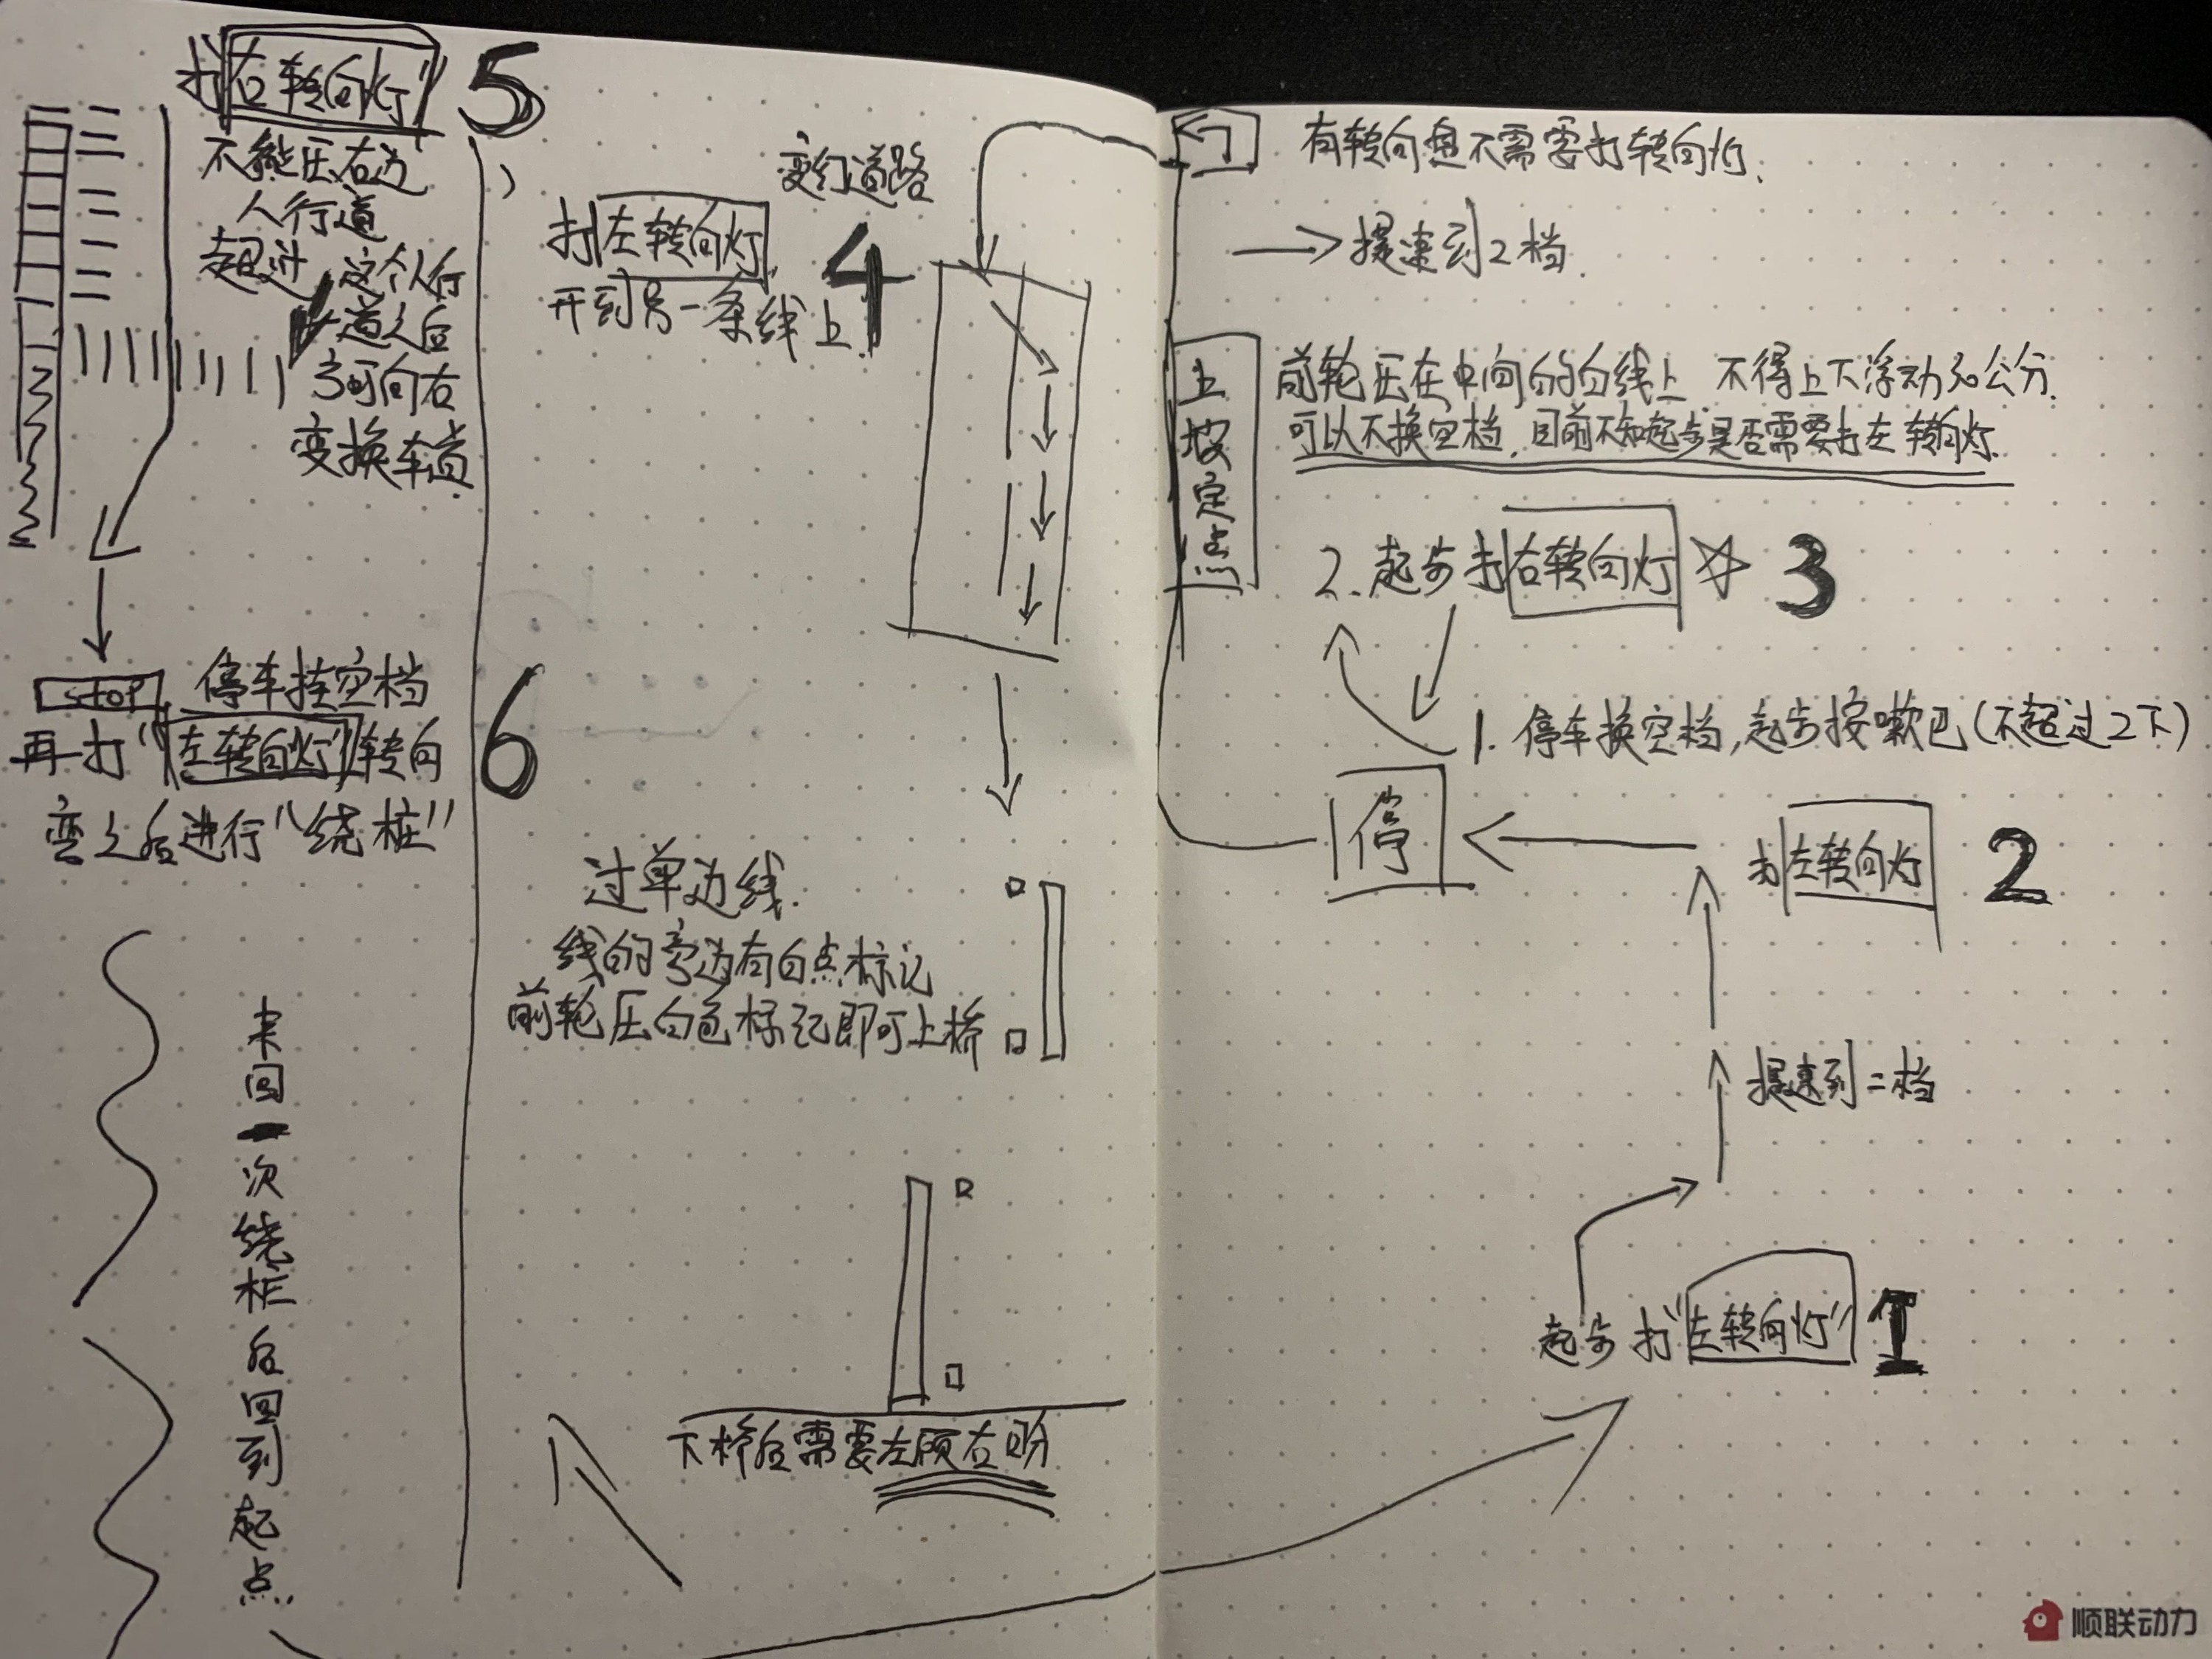 打"右转向灯" 5
不能压右边
人行道
超过 这个人行
道之后
方可向右
变换车道
STOP 停车挂空档
再打"左转向灯"转向 6
变之后进行"绕桩"
来回一次绕桩后回到起点
变幻道路
打左转向灯 4
开到另一条线上
过单边线.
线的旁边有白点标记
前轮压白色标记即可上桥
下桥后需要左顾右盼
有转向盘不需要打转向灯.
提速到2档.
上坡定点
前轮压在中间的白线上 不得上下浮动30公分.
可以不换空档,目前不知起步是否需要打左转向灯.
2.起步打右转向灯 3
1.停车换空档,起步按嗽巴(不超过2下)
停
打左转向灯 2
提速到二档
起步 打"左转向灯" 1
顺联动力